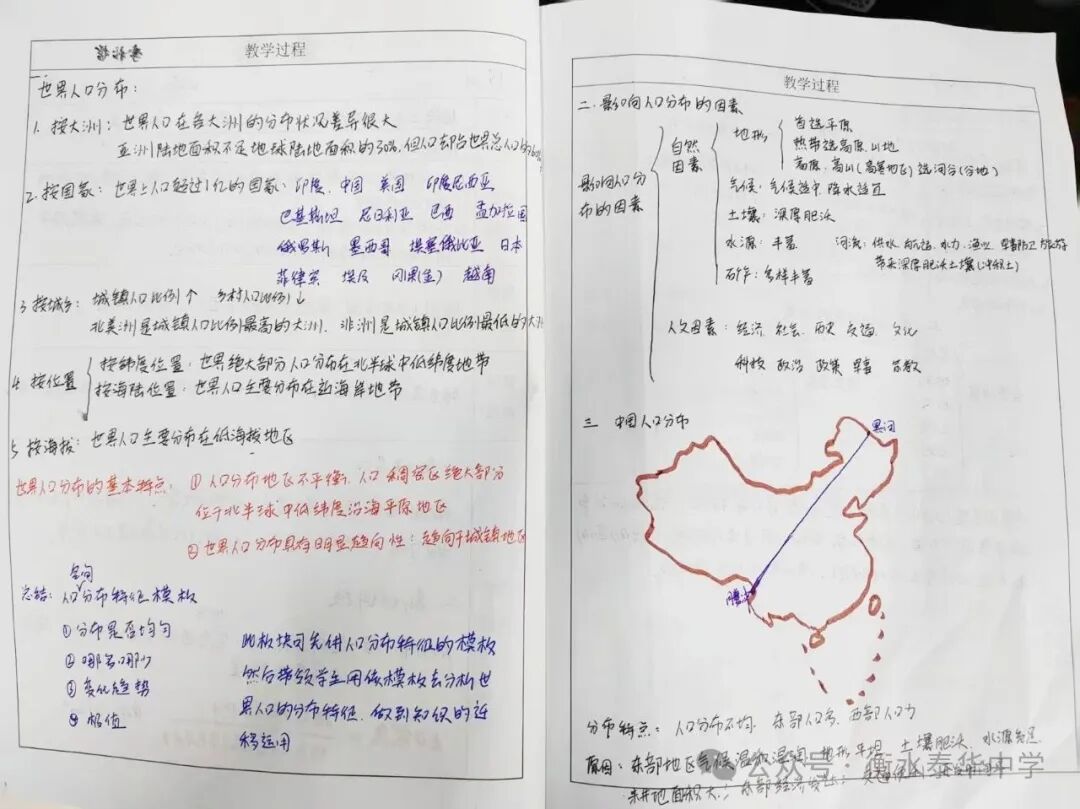 教学过程
世界人口分布：
1. 按大洲：世界人口在各大洲的分布状况差异很大
亚洲陆地面积不足地球陆地面积的30%，但人口却占世界总人口的60%
2. 按国家：世界上人口超过1亿的国家：印度、中国 美国 印度尼西亚
巴基斯坦 尼日利亚 巴西 孟加拉国
俄罗斯 墨西哥 埃塞俄比亚 日本
菲律宾 埃及 刚果(金) 越南
3. 按城乡：城镇人口比例↑ 乡村人口比例↓
北美洲是城镇人口比例最高的大洲，非洲是城镇人口比例最低的大洲
4. 按位置
按纬度位置：世界绝大部分人口分布在北半球中低纬度地带
按海陆位置：世界人口主要分布在近海岸地带
5. 按海拔：世界人口主要分布在低海拔地区
世界人口分布的基本特点：① 人口分布地区不平衡，人口稠密区绝大部分
位于北半球中低纬度沿海平原地区
② 世界人口分布具有明显趋向性：趋向于城镇地区
空间
总结：人口分布特征模板
① 分布是否均匀
② 哪多哪少
③ 变化趋势
④ 极值
此板块可先讲人口分布特征的模板
然后带领学生用依模板去分析世
界人口的分布特征，做到知识的迁
移运用
教学过程
二. 影响人口分布的因素
影响人口分布的因素
自然因素
地形
首选平原
热带选高原、山地
高原、高山(高寒地区)选河谷(谷地)
气候：气候适中 降水适宜
土壤：深厚肥沃
水源：丰富 河流：供水 航运、水力、渔业、军事防卫 旅游
带来深厚肥沃土壤(冲积土)
矿产：多样丰富
人文因素：经济、社会、历史 交通、文化
科技 政治 政策 军事 宗教
三 中国人口分布
黑河
腾冲
分布特点：人口分布不均，东部人口多，西部人口少
原因：东部地区气候温和湿润，地形平坦，土壤肥沃，水源充足
耕地面积大；东部经济发达；
公众号·衡水泰华中学